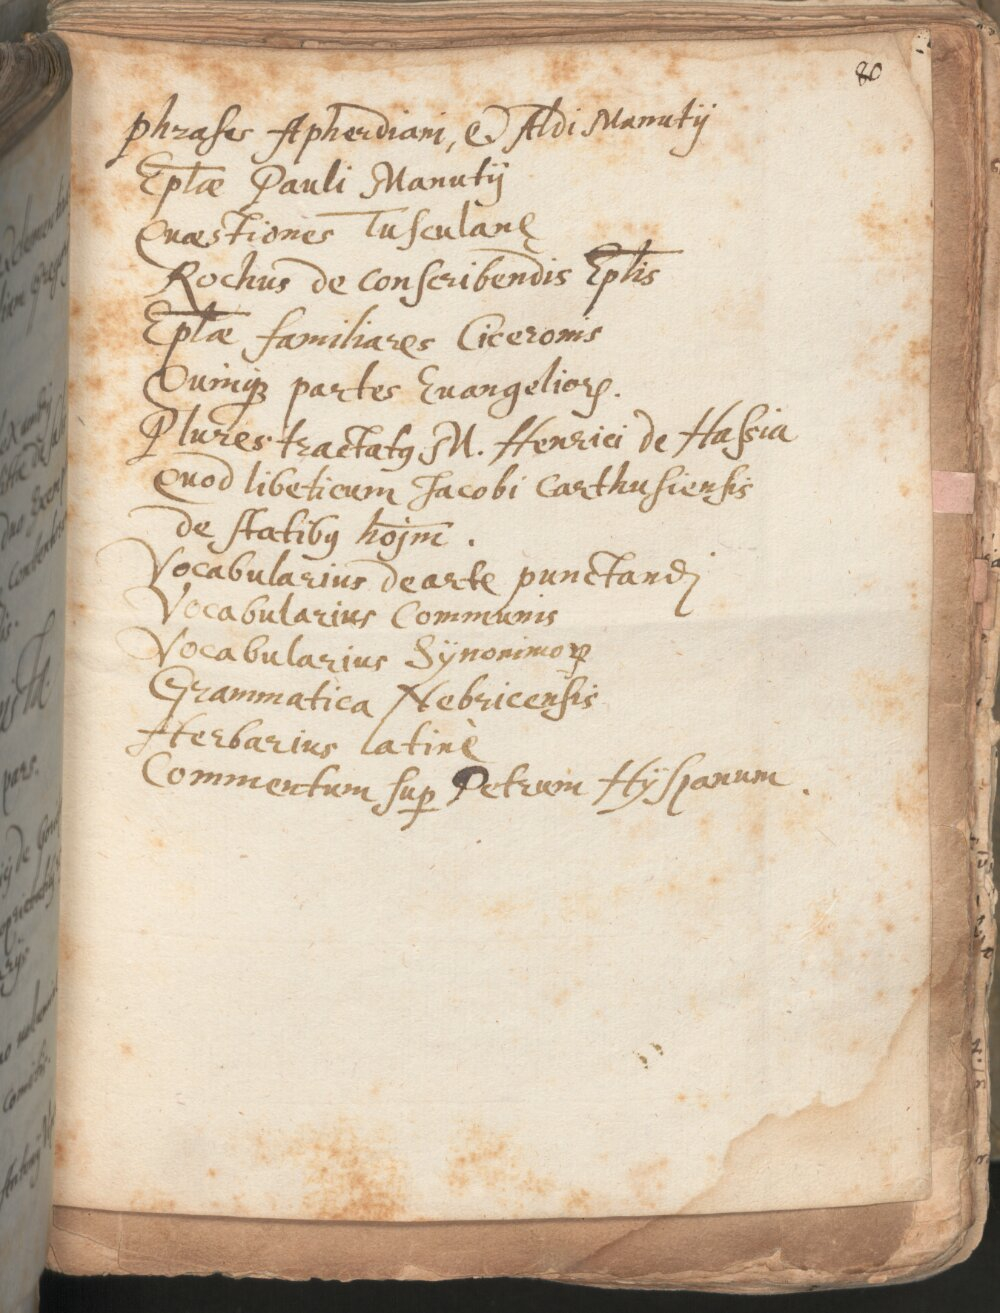 80
Phrases Apherdiani, & Aldi Manutij
Eptæ Pauli Manutij
Quæstiones Tusculanę
Rochus de conscribendis Eptis
Eptæ familiares Ciceronis
Quinqꝫ partes Euangelioꝝ.
Plures tractatꝰ M. Henrici de Hassia
Quod libeticum Jacobi Carthusiensis
de statibꝰ hoĩm.
Vocabularius de arte punctandj
Vocabularius Communis
Vocabularius Sÿnonimoꝝ
Grammatica Nebricensis
Herbarius latinè
Commentum suꝑ Petrum Hÿspanum.